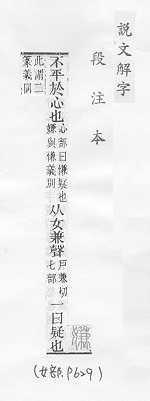 說文解字
段注本
嫌
不平於心也
心部曰慊疑也
嫌與慊義別
从女兼聲
戶兼切
七部
一曰疑也
此謂二
篆義同
(女部.P629)